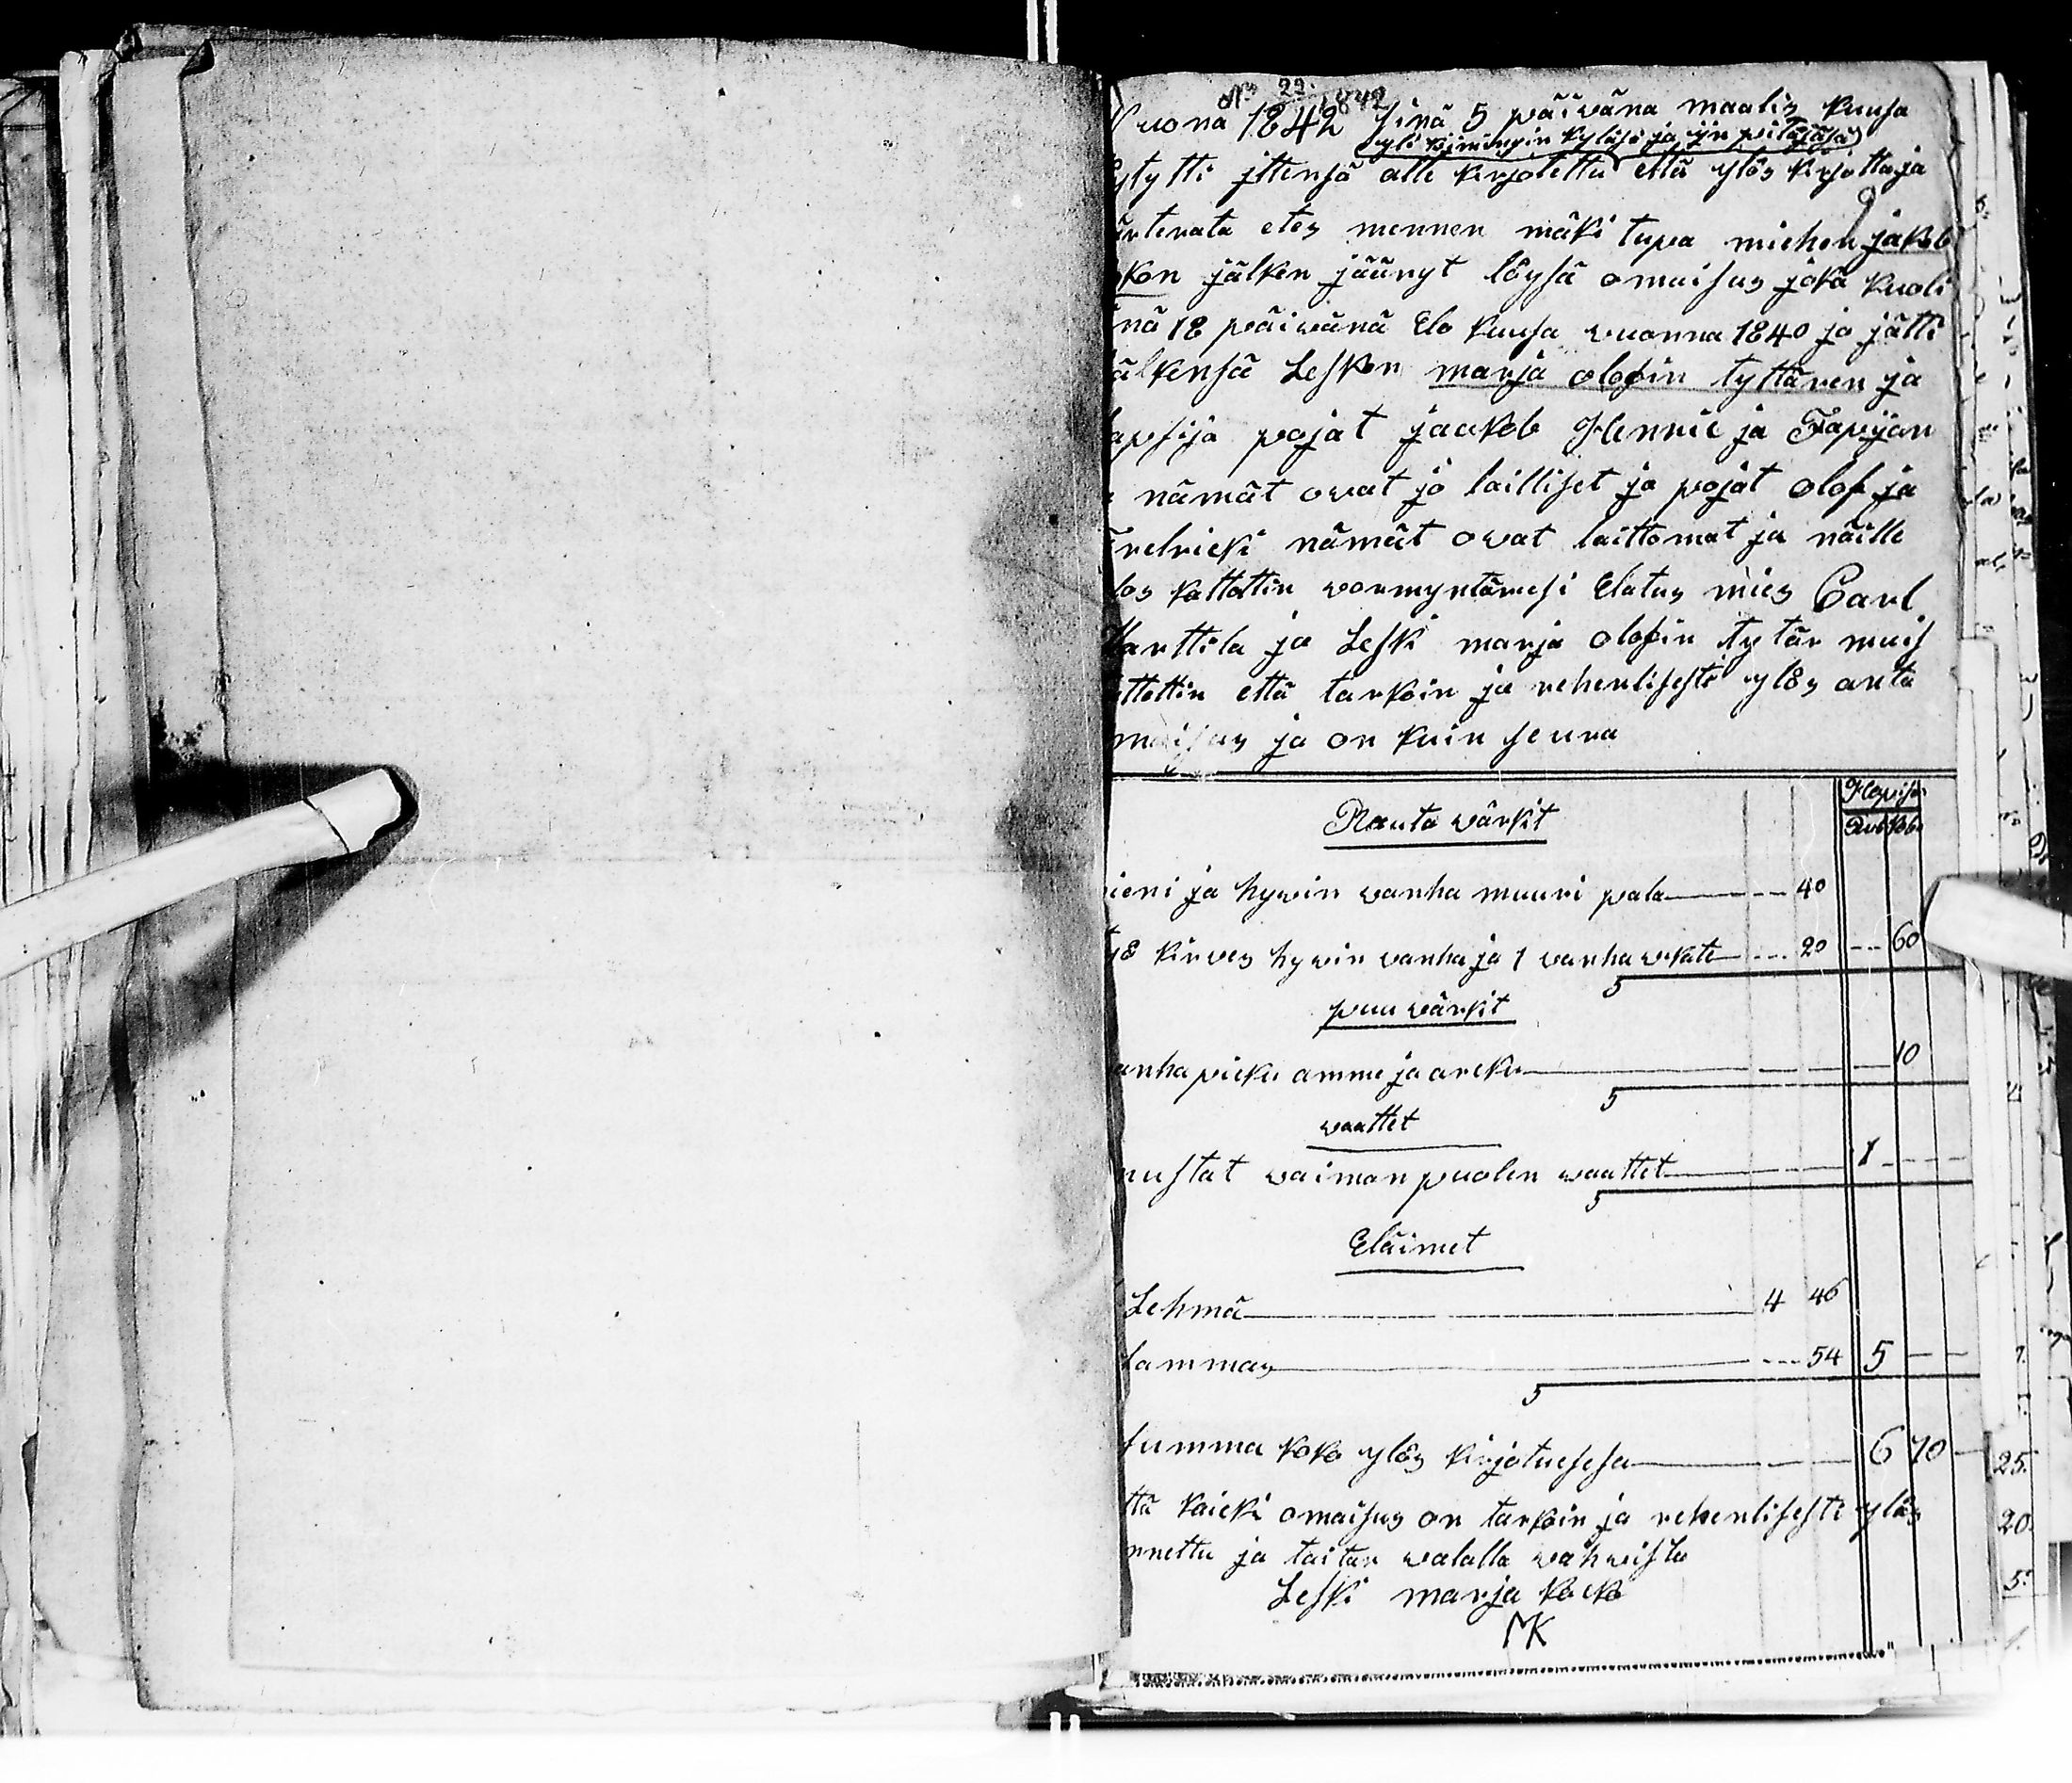 No 22. 1842
Vuona 1842 sinä 5 päiwäna maalis kuusa
yli kiimingin kyläsä ja iin pitäjäsä
ytytti ittensä alle kirjotettu että ylös kirjottaja
ärterata etes mennen mäki tupa miehen jakob
kon jälken jäänyt löysä omaisus joka kuoli
nä 18 päiwänä Elo kuusa wuonna 1840 ja jätti
älkensä Lesken marja olofin tyttären ja
apsija pojat jaakob Henric ja Tapijan
nämät owat jo lailliset ja pojat olof ja
relricki nämät owat laittomat ja näille
los kattottin wormyntärisi Elatus mies Carl
Marttila ja Leski marja olofin tytär muis
ttettin että tarkoin ja rehenlisesti ylös anta
maisus ja on kuin seura
Hopisa
Rauta wärkit Rub kob
ieni ja hywin wanha muuri pala 40
kirves hywin wanha ja 1 wanha wikate 20 60
5
puu wärkit
anha pieku ammu ja areku 10
5
waattet
nustat waiman puolen waattet 1
5
Eläimet
Lehmä 4 46
lammas 54 5
5
summa koko ylös kirjotuesesa 6 70
ttä kaicki omaisus on tarkoin ja rehenlisesti ylös
nnettu ja taitan walalla wahwista
Leski marja kocko
MK
25.
20.
5.